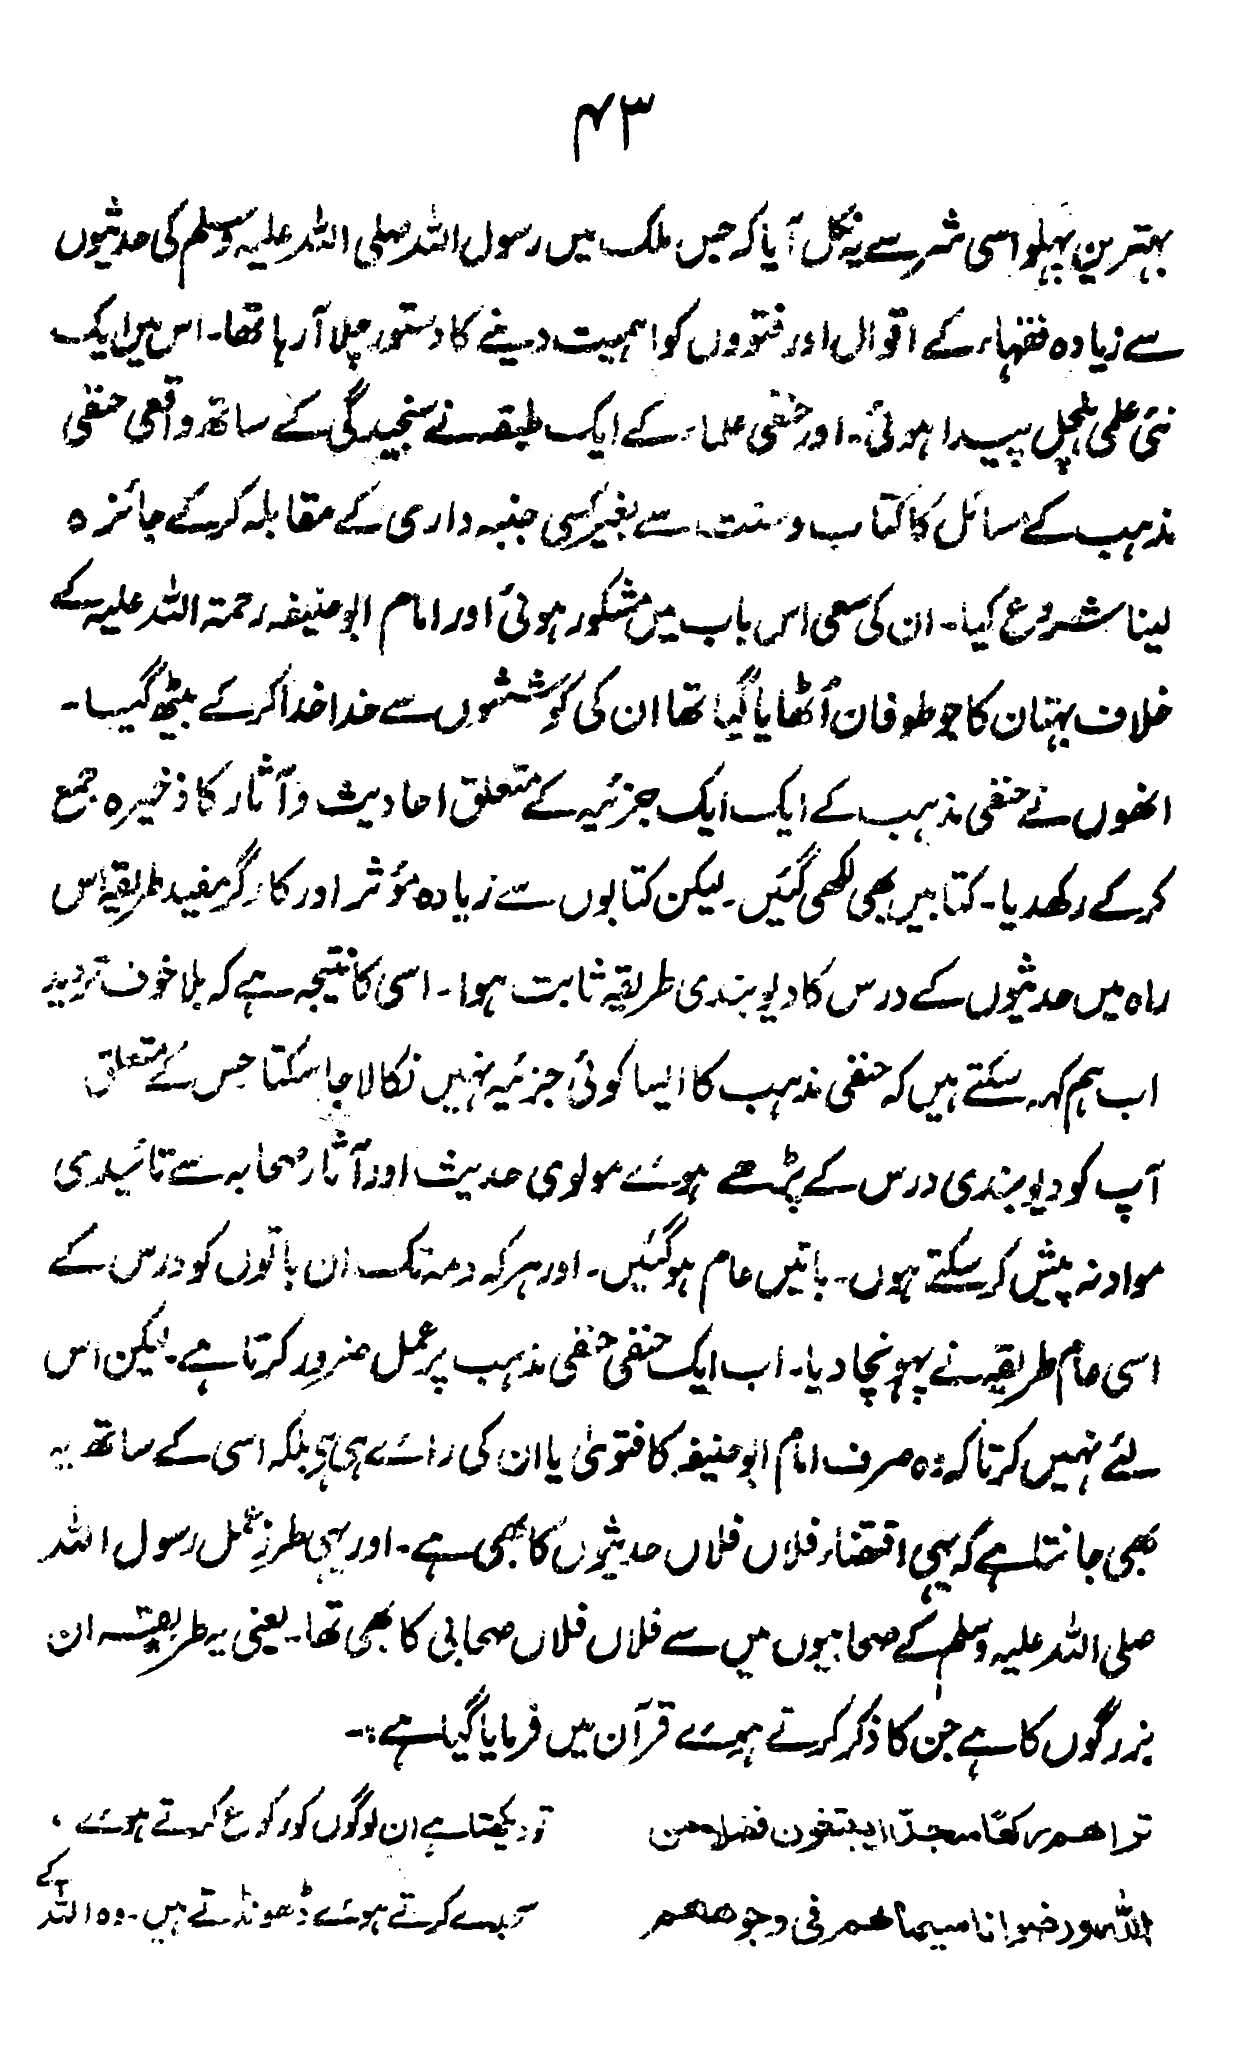 ۴۳
بہترین پہلو اسی شر سے یہ نکل آیا کہ جس ملک میں رسول اللہ صلی اللہ علیہ وسلم کی حدیثوں
سے زیادہ فقہاء کے اقوال اور فتووں کو اہمیت دینے کا دستور چلا آ رہا تھا۔ اس میں ایک
نئی علمی ہلچل پیدا ہوئی۔ اور حنفی علماء کے ایک طبقہ نے سنجیدگی کے ساتھ واقعی حنفی
مذہب کے مسائل کا کتاب و سنت سے بغیر کسی جنبہ داری کے مقابلہ کر کے جائزہ
لینا شروع کیا۔ ان کی سعی اس باب میں مشکور ہوئی اور امام ابوحنیفہ رحمتہ اللہ علیہ کے
خلاف بہتان کا جو طوفان اُٹھایا گیا تھا ان کی کوششوں سے خدا خدا کر کے بیٹھ گیا۔
انھوں نے حنفی مذہب کے ایک ایک جزئیہ کے متعلق احادیث و آثار کا ذخیرہ جمع
کر کے رکھدیا۔ کتابیں بھی لکھی گئیں۔ لیکن کتابوں سے زیادہ مؤثر اور کارگر مفید طریقہ اس
راہ میں حدیثوں کے درس کا دیوبندی طریقہ ثابت ہوا۔ اسی کا نتیجہ ہے کہ بلا خوف تردید
اب ہم کہہ سکتے ہیں کہ حنفی مذہب کا ایسا کوئی جزئیہ نہیں نکالا جا سکتا جس کے متعلق
آپ کو دیوبندی درس کے پڑھے ہوئے مولوی حدیث اور آثار صحابہ سے تائیدی
مواد نہ پیش کر سکتے ہوں۔ باتیں عام ہوگئیں۔ اور ہر کہ دمہ تک ان باتوں کو درس کے
اسی عام طریقہ نے پہونچا دیا۔ اب ایک حنفی حنفی مذہب پر عمل ضرور کرتا ہے۔ لیکن اس
لئے نہیں کرتا کہ وہ صرف امام ابوحنیفہ کا فتویٰ یا ان کی رائے ہی ہے بلکہ اسی کے ساتھ یہ
بھی جانتا ہے کہ یہی اقتضاء فلاں فلاں حدیثوں کا بھی ہے۔ اور یہی طرز عمل رسول اللہ
صلی اللہ علیہ وسلم کے صحابیوں میں سے فلاں فلاں صحابی کا بھی تھا۔ یعنی یہ طریقہ ان
بزرگوں کا ہے جن کا ذکر کرتے ہوئے قرآن میں فرمایا گیا ہے:۔
تراھم رکعًا سجدًا یبتغون فضلا من
تو دیکھتا ہے ان لوگوں کو رکوع کرتے ہوئے،
اللہ ورضوانا سیماھم فی وجوھھم
سجدے کرتے ہوئے ڈھونڈتے ہیں۔ وہ اللہ کے